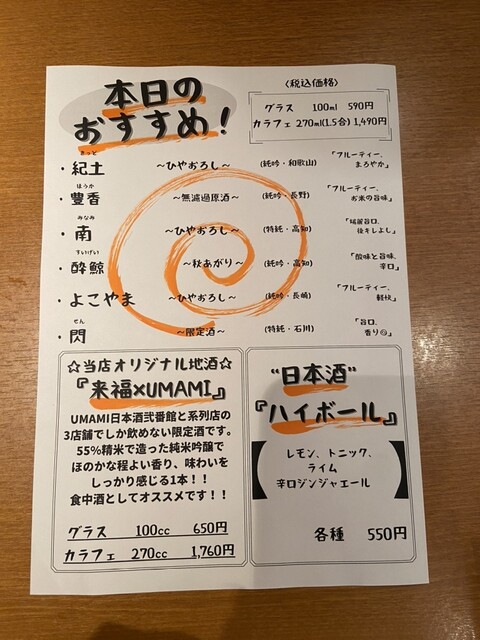 本日の
おすすめ！
〈税込価格〉
グラス 100ml 590円
カラフェ 270ml(1.5合) 1,490円
きっど
・紀土 〜ひやおろし〜 (純吟・和歌山) 「フルーティー、
まろやか」
ほうか
・豊香 〜無濾過原酒〜 (純吟・長野) 「フルーティー、
お米の旨味」
みなみ
・南 〜ひやおろし〜 (特純・高知) 「綺麗旨口、
後キレよし」
すいげい
・酔鯨 〜秋あがり〜 (純吟・高知) 「酸味と旨味、
辛口」
・よこやま 〜ひやおろし〜 (純吟・長崎) 「フルーティー、
軽快」
せん
・閃 〜限定酒〜 (特純・石川) 「旨口、
香り◎」
☆当店オリジナル地酒☆
『来福×UMAMI』
UMAMI日本酒弐番館と系列店の
3店舗でしか飲めない限定酒です。
55%精米で造った純米吟醸で
ほのかな程よい香り、味わいを
しっかり感じる1本！！
食中酒としてオススメです！！
グラス 100cc 650円
カラフェ 270cc 1,760円
"日本酒"
『ハイボール』
レモン、トニック、
ライム
辛口ジンジャエール
各種 550円